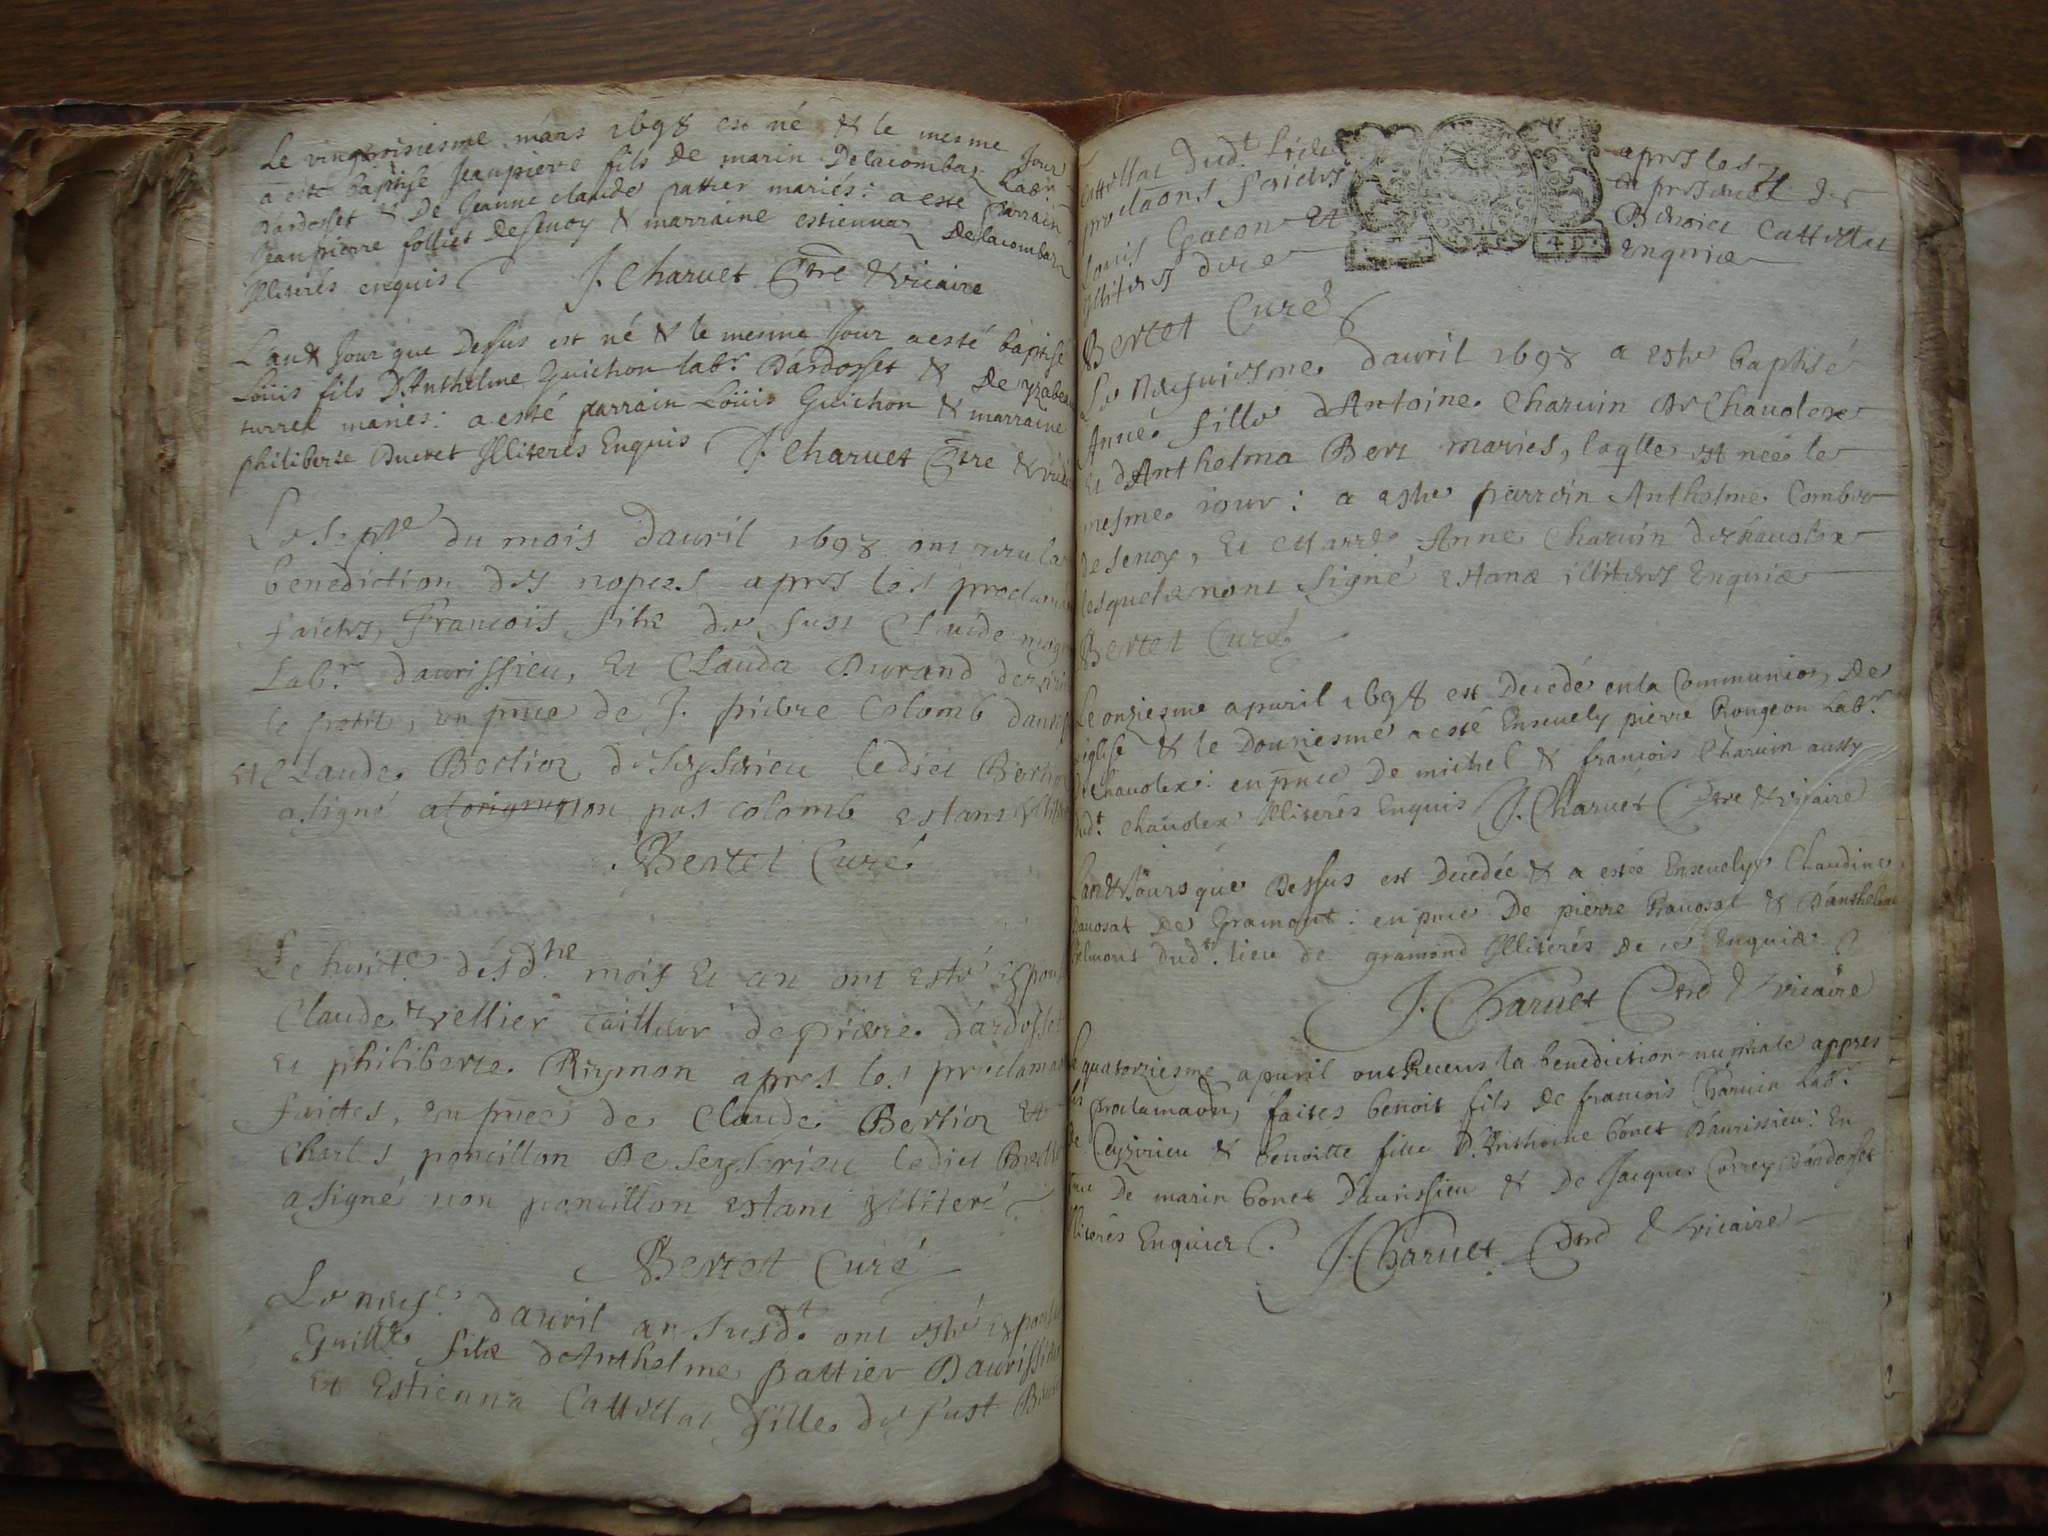 Le vingtroisiesme mars 1698 est né & le mesme Jour
a esté baptisé Jeanpierre fils de marin Delacombaz Labr
Dardosset & De Jeanne claude pattier mariés: a esté parrain
Jeanpierre folliet Desenoy & marraine estiennaz Delacombaz
Illiterés enquis J. Charuet ptre & vicaire
L'an & Jour que Dessus est né & le mesme Jour a esté baptisé
Loüis fils D'Anthelme Guichon labr. Dardosset & De yzabea
turrel mariés: a esté parrain Loüis Guichon & marraine
philiberte Ducret Illiterés Enquis J. Charuet ptre & vic
Le septe du mois dauril 1698 ont receu la
benediction des nopces apres les proclama
faictes, Francois filz de fust Claude
Labr. daurissieu, Et Clauda Durand de
le petit, en pnce de J. pierre Colomb
et Claude Bertior de seyserieu ledict Bertior
a signé non pas colomb estant
Bertet Curé
Le huicte desdt mois Et an ont esté Espou
Claude vellier tailleur de pierre d'ardosset
et philiberte Reymon apres les proclama
faictes, en pnce de Claude Bertior Et
Charles poncillon De Seyserieu ledict
a signé non poncillon estant illiteré
Bertet Curé
Le neufe dauril an susdt. ont esté espou
Guille filz dAnthelme pattier Daurissieu
Et Estienna Cattellat fille de fust
Cattellat dudt. lieu apres les
proclaons faictes En presence de
Louis Gacon Et Benoict Cattellat
illiteres de ce Enquis
Bertet Curé
Le neufuiesme dauril 1698 a esté baptisé
Anne fille dAntoine Charuin de Chauolex
et dAnthelma Bert mariés, laqlle est née le
mesme iour: a esté parrain Anthelme Combet
de senoy, Et Marre Anne Charuin de chauolex
lesquelz nont signé estans illiteres Enquis
Bertet Curé
Le onziesme apuril 1698 est Decedé en la Communion De
leglise & le Douziesme a esté Enseuely pierre Rougeon Labr.
de Chauolex: en pnce De michel & francois Charuin aussy
dudt. chauolex Illiterés Enquis J. Charuet ptre & vicaire
L'an & Jours que Dessus est Decedée & a estée Enseuelye Claudine
Rauosat De Gramont: en pnce De pierre Rauosat & D'anthelme
dudt. lieu de gramond Illiterés de ce Enquis
J. Charuet ptre & vicaire
Le quatorziesme apuril ont Receus la benediction nuptiale appres
les proclamaons, faites benoit fils de francois Charuin Labr.
De Ceyzirieu & benoitte fille D'Anthoine bonet Daurissieu: En
pnce De marin bonet Daurissieu & De Jacques Correy Dardosset
Illiterés Enquis J. Charuet ptre & vicaire